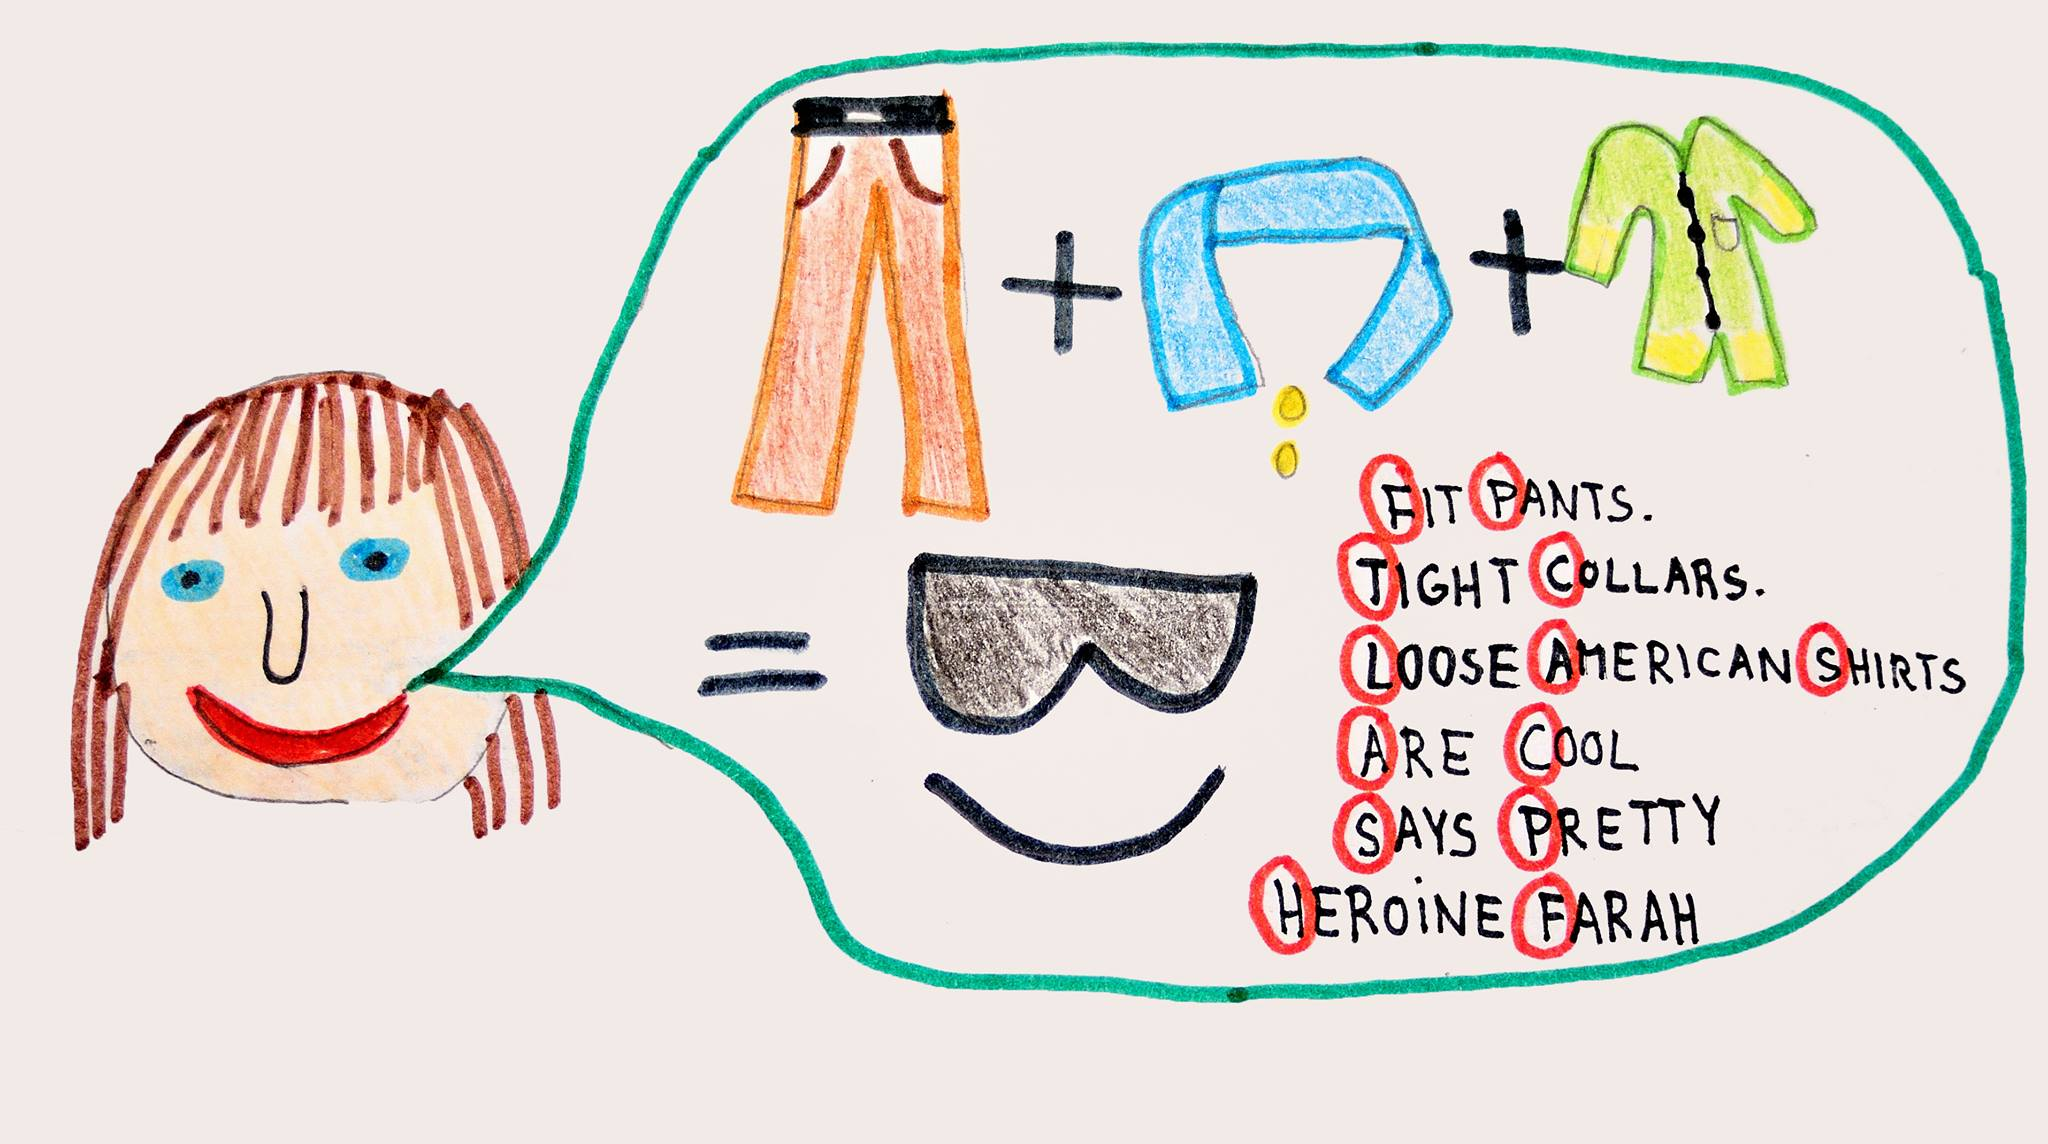 FIT PANTS.
TIGHT COLLARS.
LOOSE AMERICAN SHIRTS
ARE COOL
SAYS PRETTY
HEROiNE FARAH